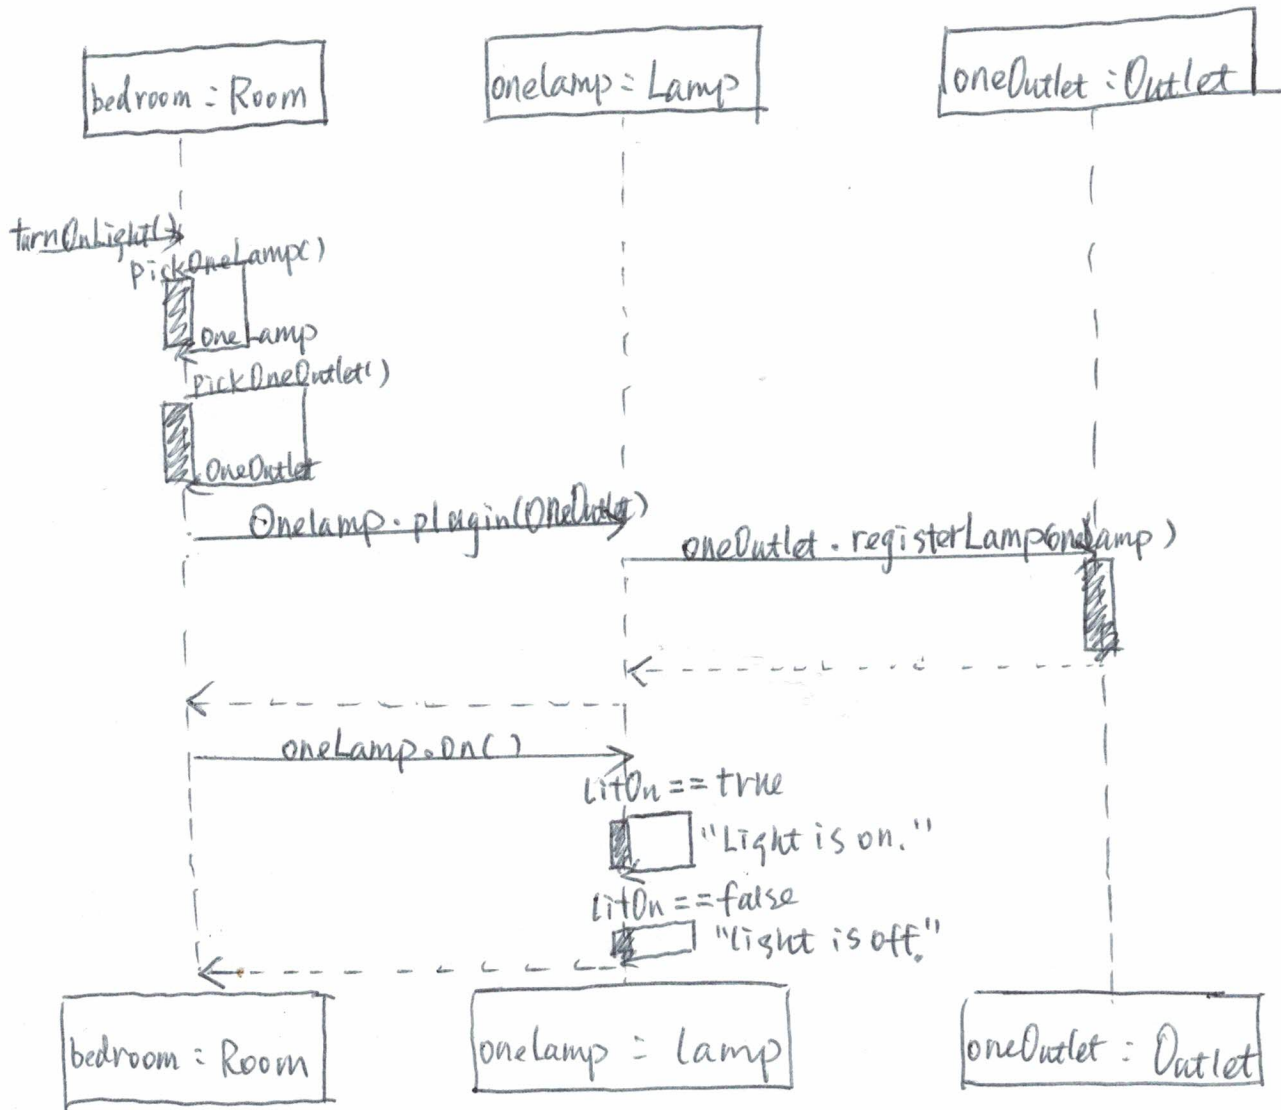 bedroom : Room
onelamp : Lamp
oneOutlet : Outlet
turnOnLight()
pickOneLamp()
oneLamp
pickOneOutlet()
OneOutlet
Onelamp.plugin(OneOutlet)
oneOutlet.registerLamp(onelamp)
oneLamp.on()
litOn == true
"Light is on."
litOn == false
"light is off."
bedroom : Room
onelamp : lamp
oneOutlet : Outlet